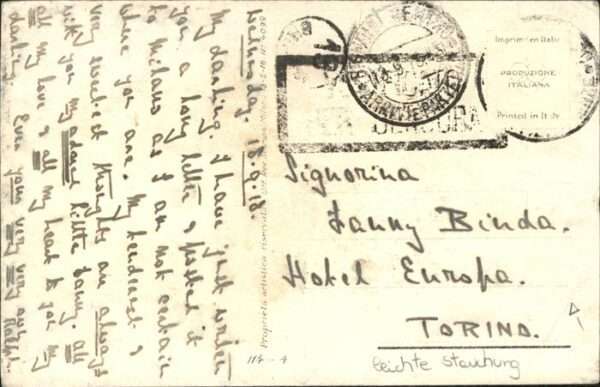 Wednesday. 18.9.18.
My darling. I have just written
you a long letter & posted it
to Milano as I am not certain
where you are. My tenderest &
very sweetest thoughts are always
with you my adored little Fanny. All
all my love & all my heart to you my
darling. Ever your very very own
Ralph.
Proprietà artistica riservata
114 - 4
Imprimé en Italie
PRODUZIONE
ITALIANA
Printed in Italy
Signorina
Fanny Binda.
Hotel Europa.
TORINO.
leichte Stauchung